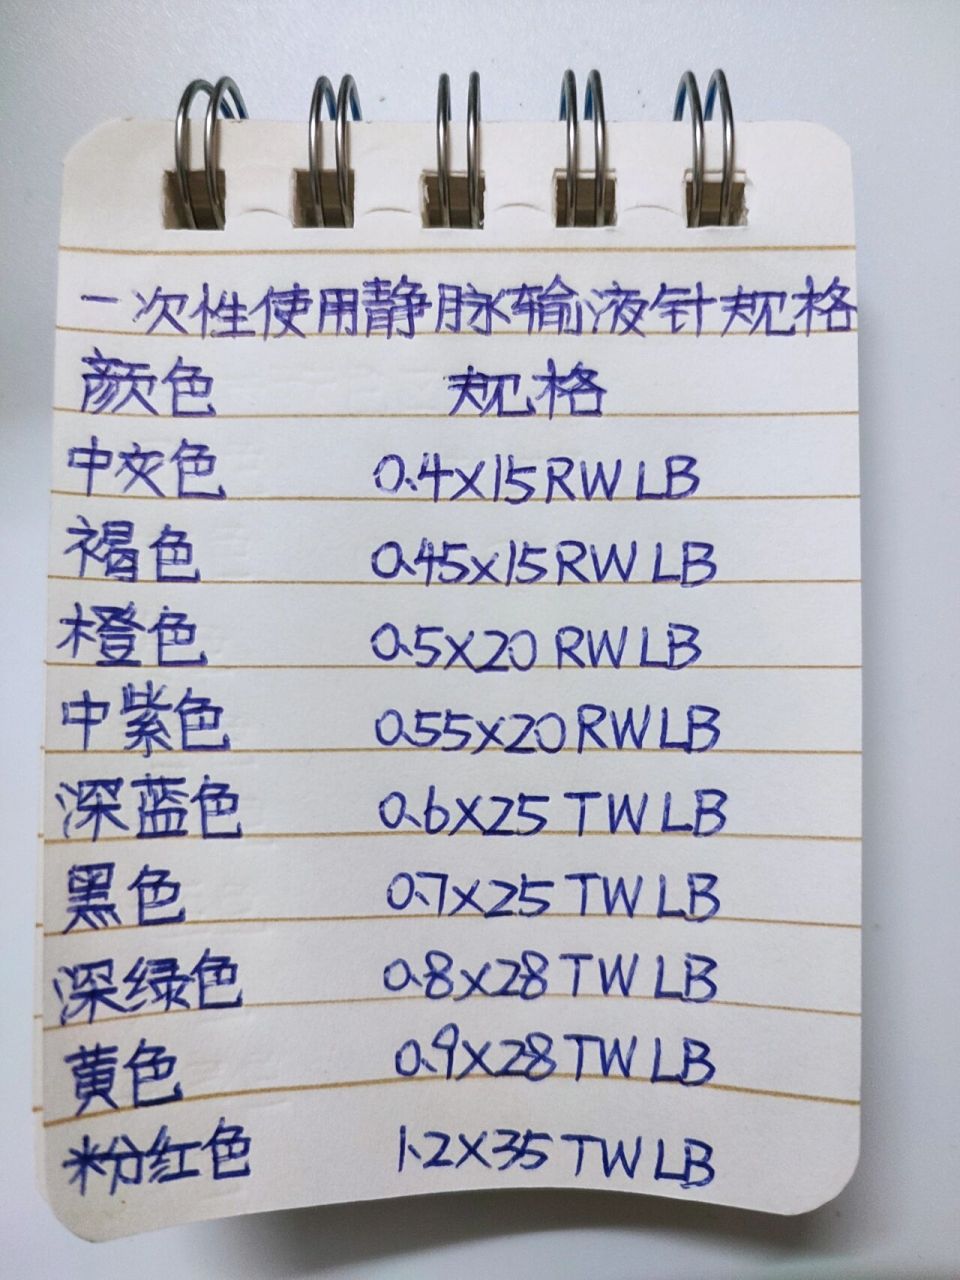 一次性使用静脉输液针规格
颜色 规格
中灰色 0.4X15RWLB
褐色 0.45X15RWLB
橙色 0.5X20 RWLB
中紫色 0.55X20RWLB
深蓝色 0.6X25 TWLB
黑色 0.7X25 TWLB
深绿色 0.8X28 TWLB
黄色 0.9X28 TWLB
粉红色 1.2X35 TWLB